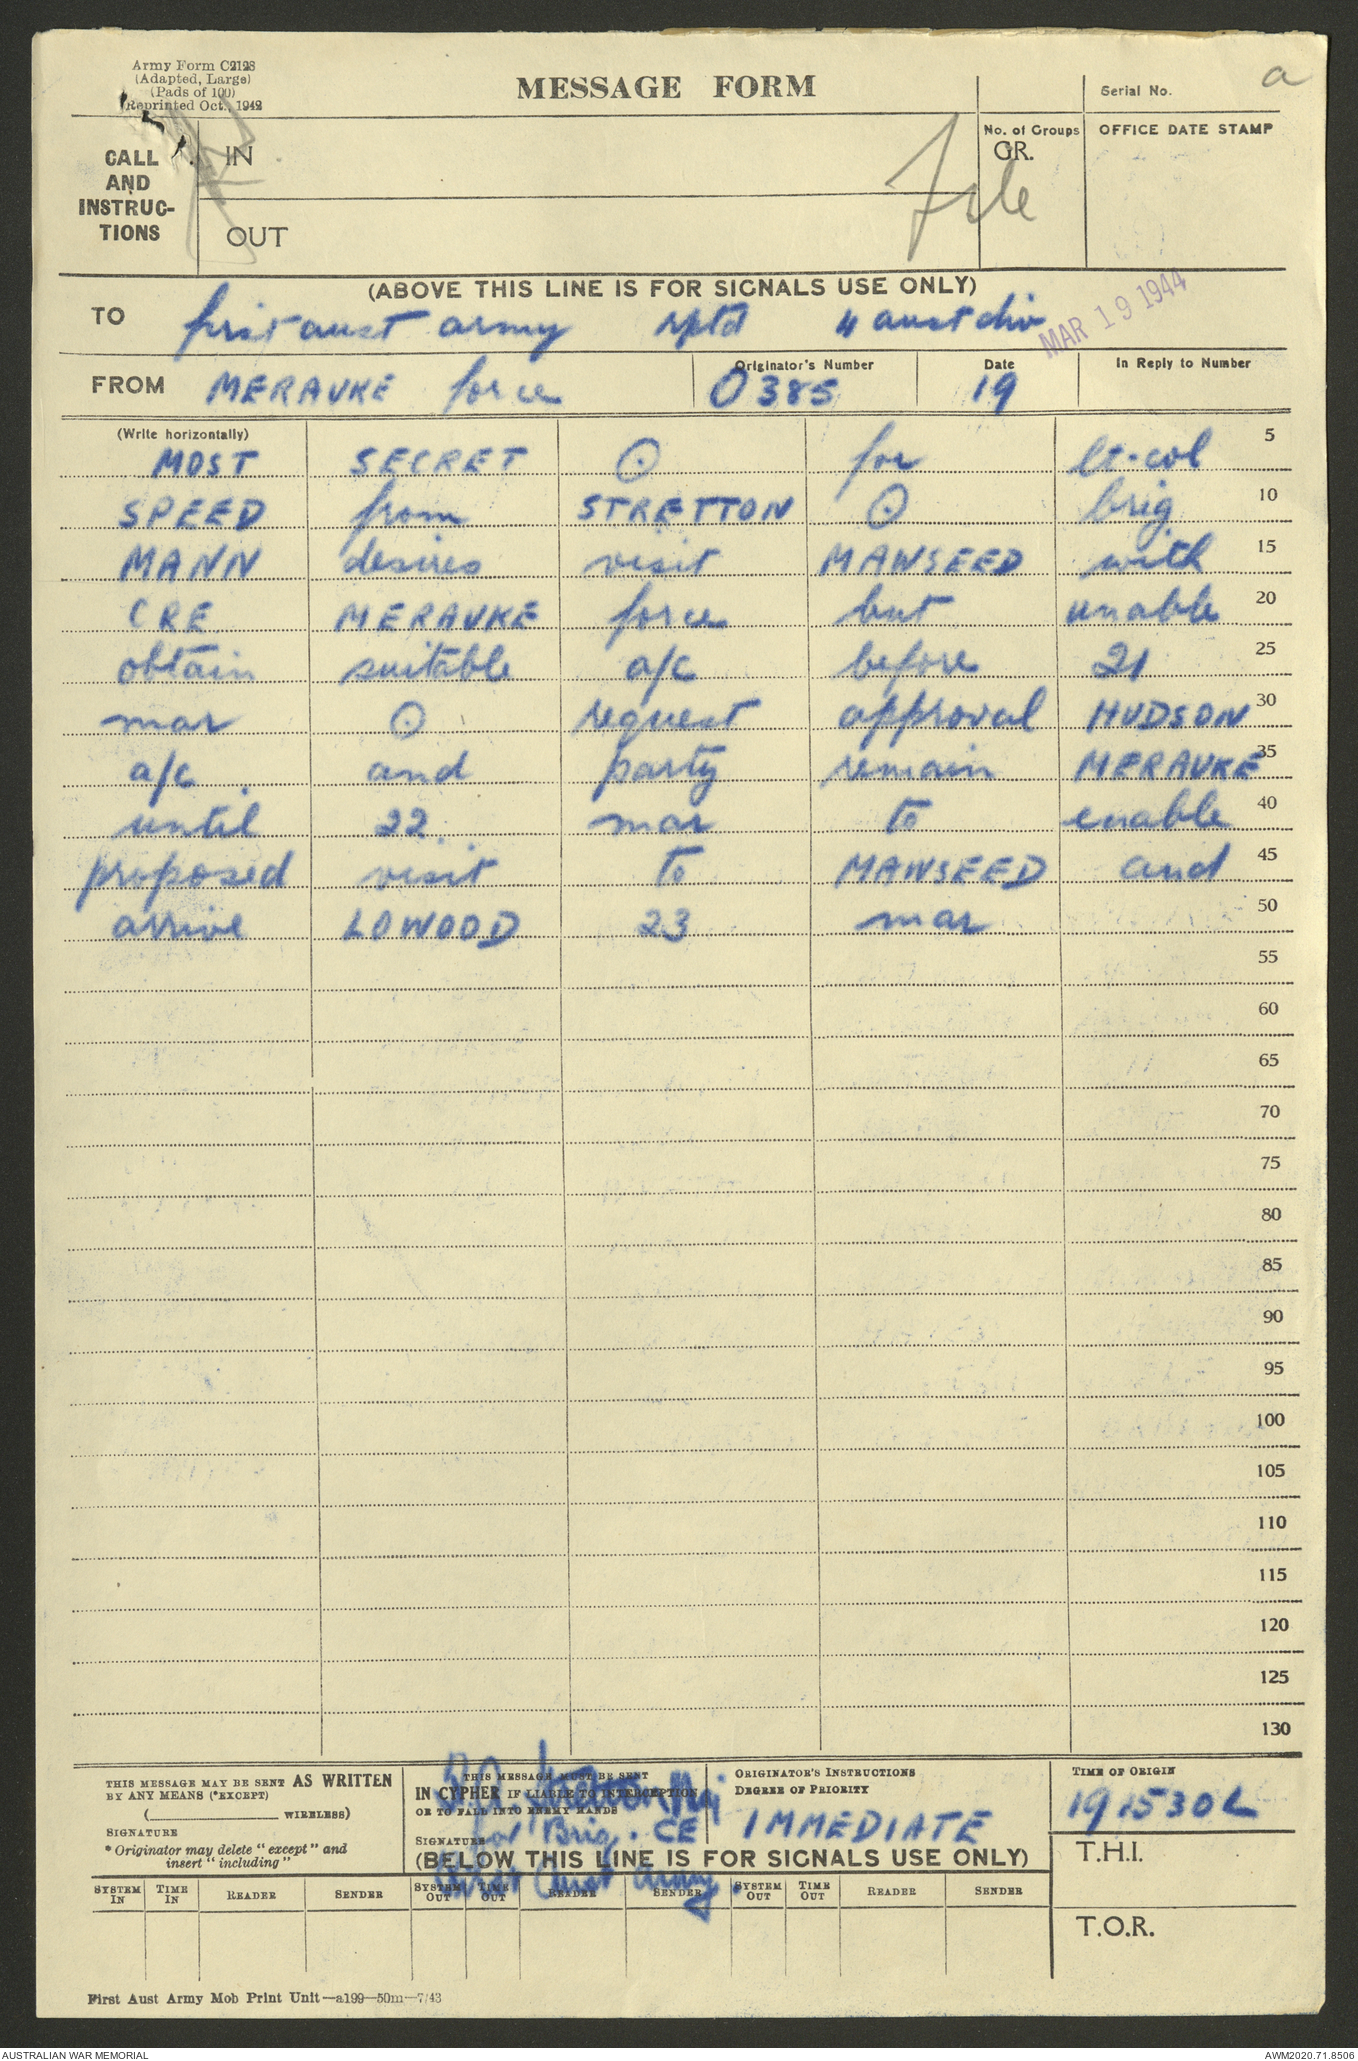 Army Form C2128
(Adapted, Large)
(Pads of 100)
Reprinted Oct., 1942
MESSAGE FORM
Serial No.
a
CALL AND INSTRUC- TIONS
IN
OUT
File
No. of Groups
GR.
OFFICE DATE STAMP
(ABOVE THIS LINE IS FOR SIGNALS USE ONLY)
MAR 19 1944
TO first aust army rptd 4 aust div
FROM MERAUKE force
Originator's Number
0385
Date
19
In Reply to Number
(Write horizontally)
MOST SECRET ⊙ for lt-col 5
SPEED from STRETTON ⊙ brig 10
MANN desires visit MAWSEED with 15
CRE MERAUKE force but unable 20
obtain suitable a/c before 21 25
mar ⊙ request approval HUDSON 30
a/c and party remain MERAUKE 35
until 22 mar to enable 40
proposed visit to MAWSEED and 45
arrive LOWOOD 23 mar 50
55
60
65
70
75
80
85
90
95
100
105
110
115
120
125
130
THIS MESSAGE MAY BE SENT AS WRITTEN
BY ANY MEANS (*EXCEPT)
( WIRELESS)
SIGNATURE
* Originator may delete "except" and
insert "including"
THIS MESSAGE MUST BE SENT
IN CYPHER IF LIABLE TO INTERCEPTION
OR TO FALL INTO ENEMY HANDS
SIGNATURE
Stretton Maj
for Brig. CE
First Aust Army.
ORIGINATOR'S INSTRUCTIONS
DEGREE OF PRIORITY
IMMEDIATE
TIME OF ORIGIN
191530L
(BELOW THIS LINE IS FOR SIGNALS USE ONLY)
T.H.I.
T.O.R.
SYSTEM IN TIME IN READER SENDER SYSTEM OUT TIME OUT READER SENDER SYSTEM OUT TIME OUT READER SENDER
First Aust Army Mob Print Unit—a199—50m—7/43
AUSTRALIAN WAR MEMORIAL
AWM2020.71.8506